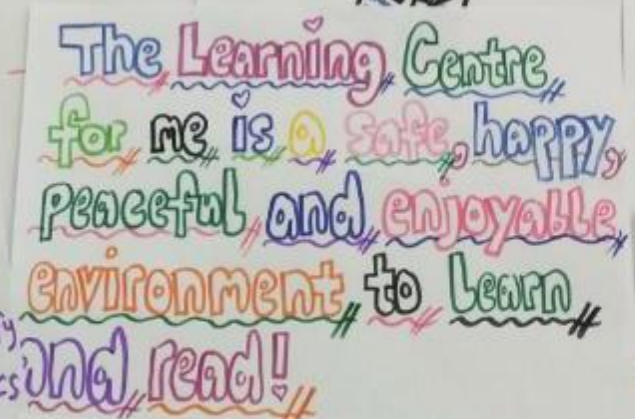 The Learning Centre
for me is a safe, happy,
peaceful and enjoyable
environment to learn
and read!